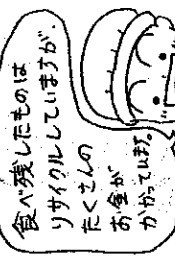 食べ残したものは
リサイクルしていますが、
たくさんの
お金が
かかっています。